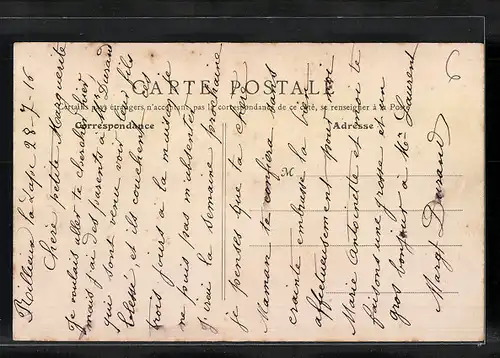 CARTE POSTALE
Certains pays étrangers n'acceptant pas la correspondance de ce côté, se renseigner à la Poste
Correspondance
Adresse
M
6
Rillieux la Pape 28-7-16
Chère petite Marguerite
Je voulais aller te chercher hier
mais j'ai des parents à Mr Durand
qui sont venu voir leur fils
blessé et ils couchent ces
trois jours à la maison je
ne puis pas m'absenter
J'irai la semaine prochaine
je penses que ta chère
Maman te confiera sans
crainte embrasse la bien
affectueusement pour moi
Marie Antoinette et moi te
faisons une grosse et un
gros bonjour à Mme Laurent
Margt Durand